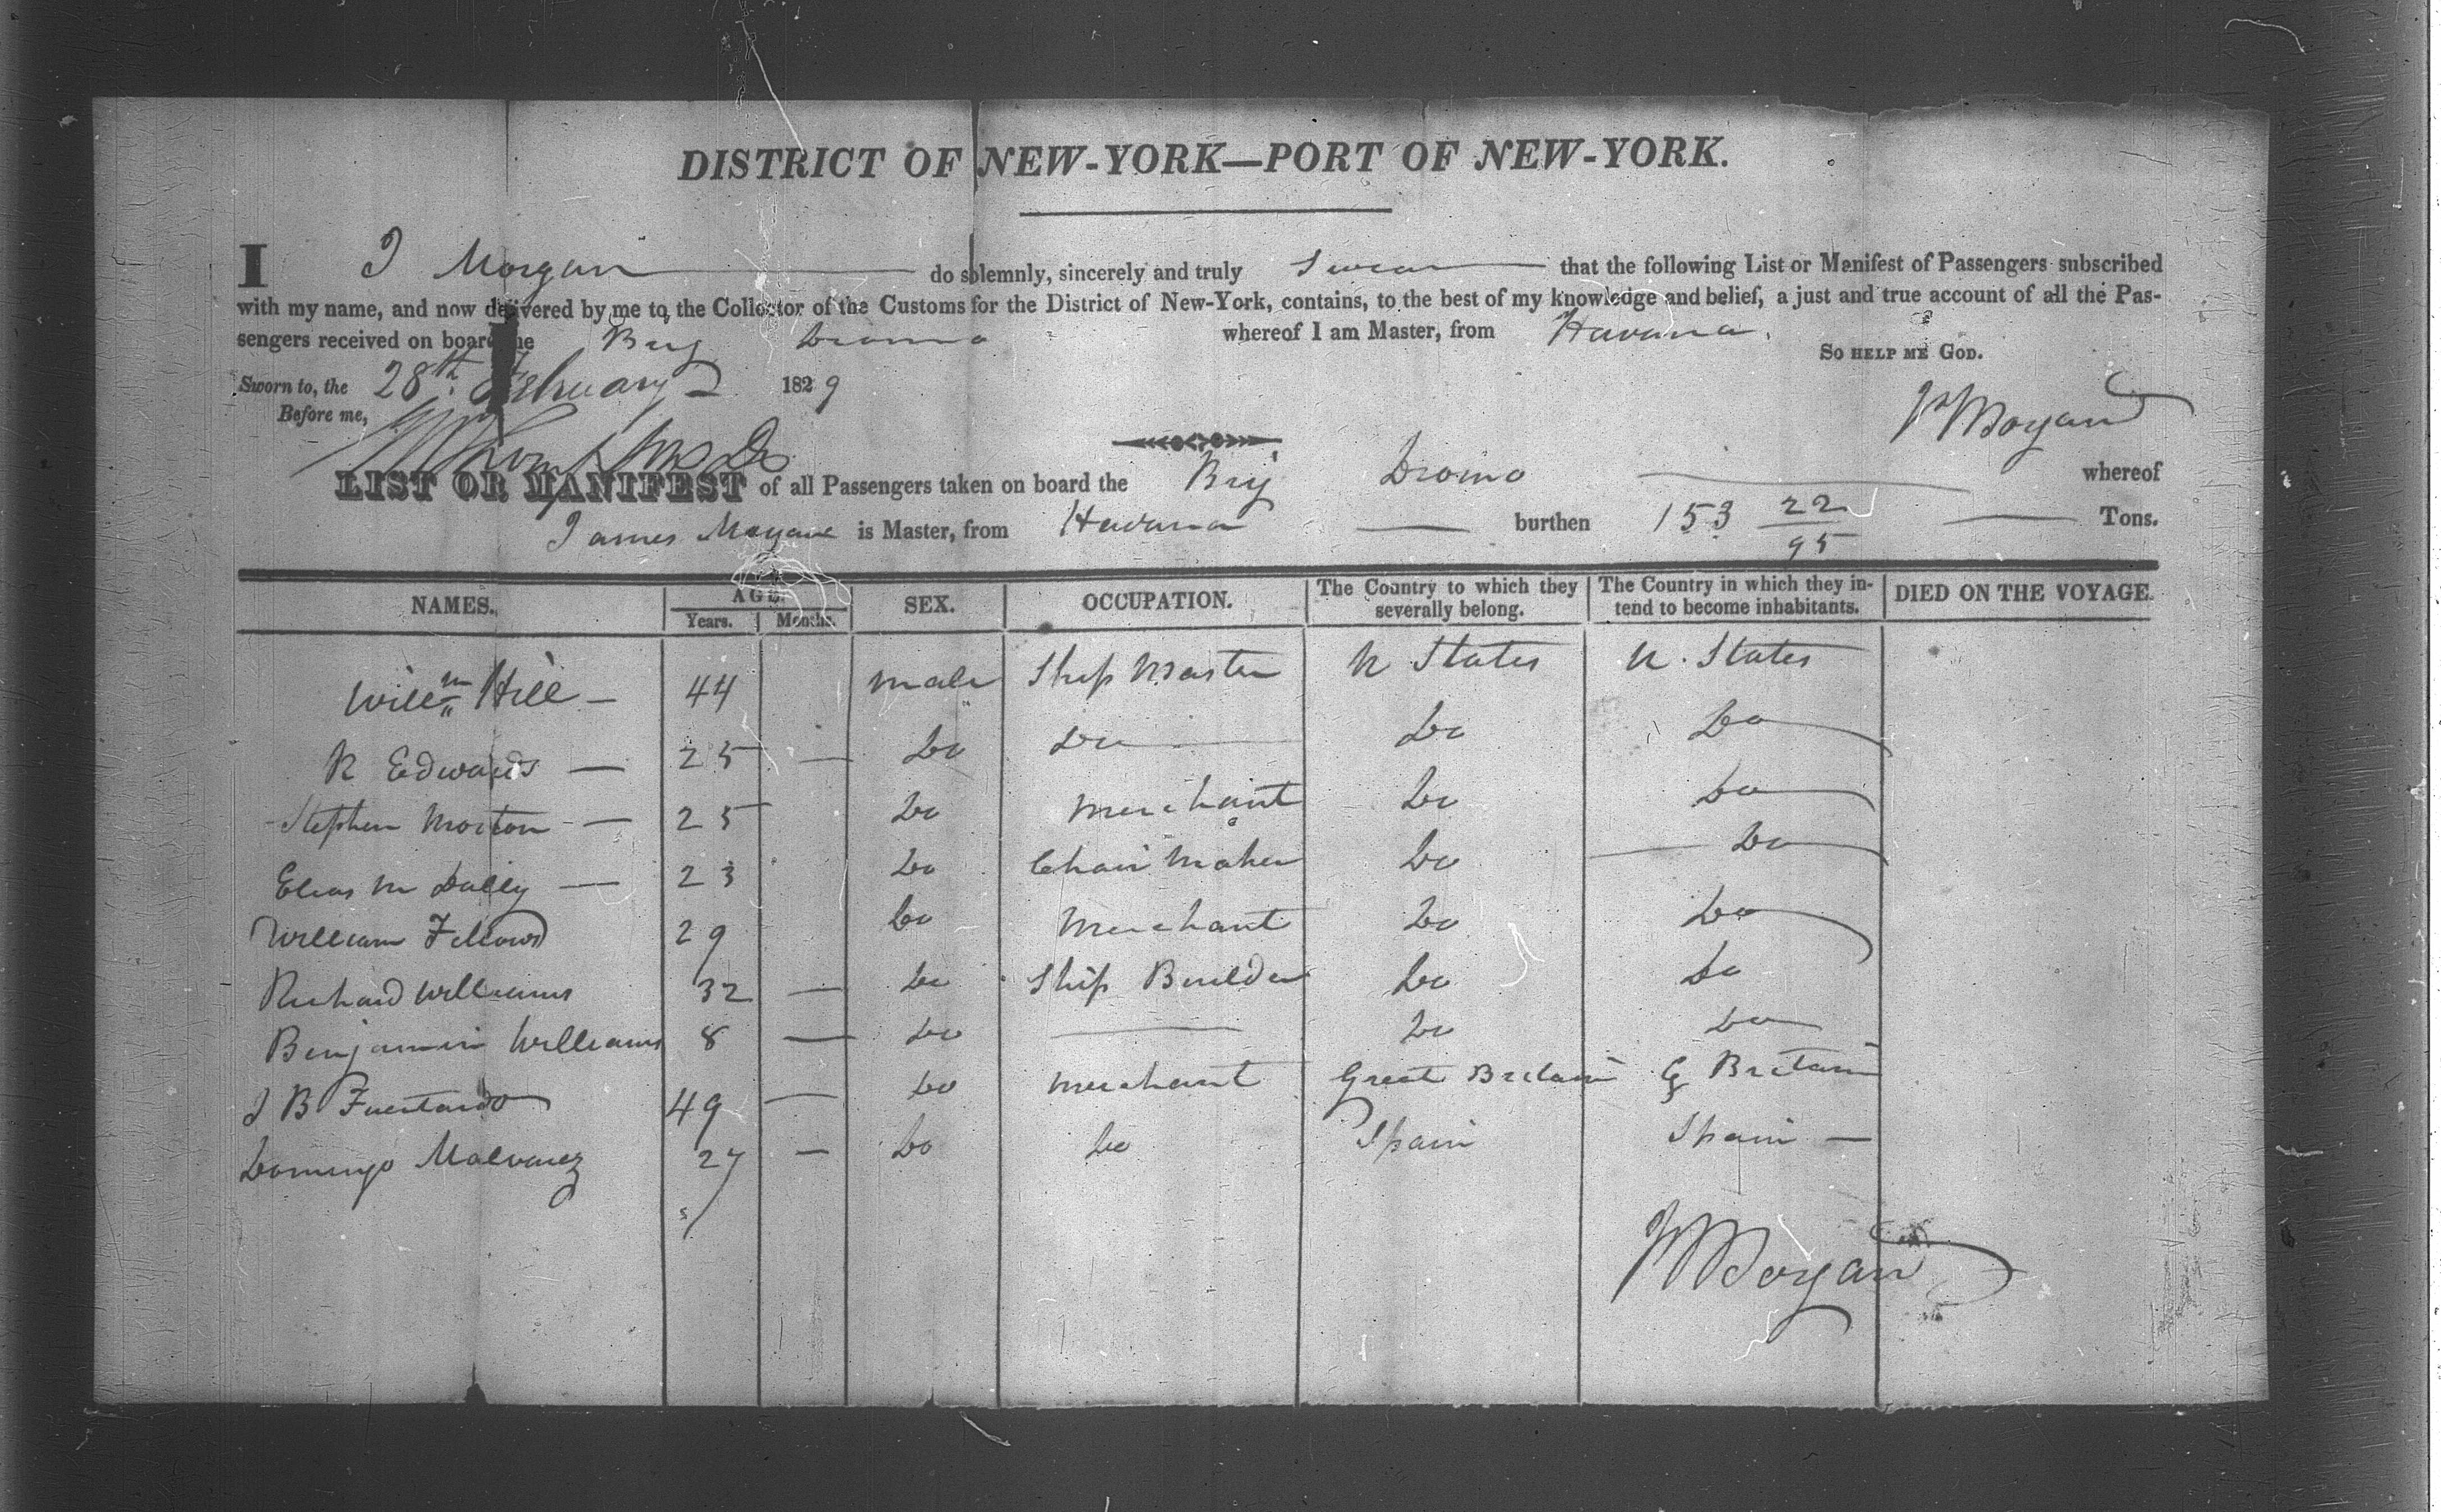 DISTRICT OF NEW-YORK—PORT OF NEW-YORK.
I J Morgan do solemnly, sincerely and truly Swear that the following List or Manifest of Passengers subscribed
with my name, and now delivered by me to the Collector of the Customs for the District of New-York, contains, to the best of my knowledge and belief, a just and true account of all the Pas-
sengers received on board the Brig Dromo whereof I am Master, from Havana.
SO HELP ME GOD.
Sworn to, the 28th February 1829
Before me,
Js Morgan
LIST OR MANIFEST of all Passengers taken on board the Brig Dromo whereof
James Morgan is Master, from Havana burthen 153 22/95 Tons.
NAMES. AGE. Years. Months. SEX. OCCUPATION. The Country to which they severally belong. The Country in which they in-tend to become inhabitants. DIED ON THE VOYAGE.
Willm Hill — 44 male Ship Master U States U. States
R Edwards — 25 — Do Do Do Do
Stephen Morton — 25 Do Merchant Do Do
Elias M Dally — 23 Do Chair Maker Do Do
William Fellows 29 Do Merchant Do Do
Richard Williams 32 — Do Ship Builder Do Do
Benjamin Williams 8 — Do — Do Do
J B Fuertardo 49 — Do Merchant Great Britain G Britain
Domingo Malvarez 27 — Do Do Spain Spain —
Js Morgan